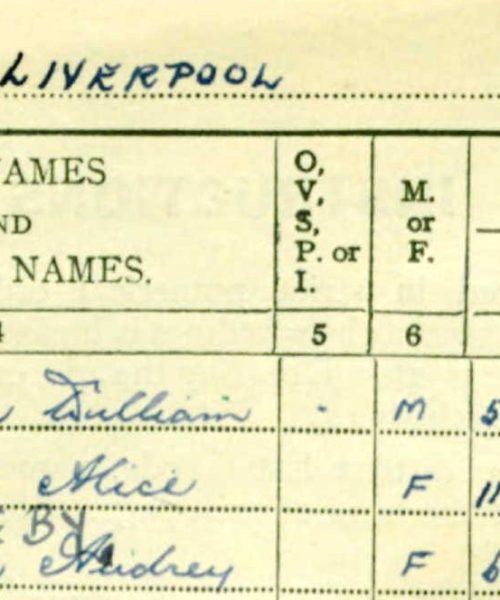 LIVERPOOL
O,
NAMES
V, M.
S, or
AND
P. or F.
NAMES.
I.
4 5 6
William . M 5
Alice F 11
BY
Audrey F 6